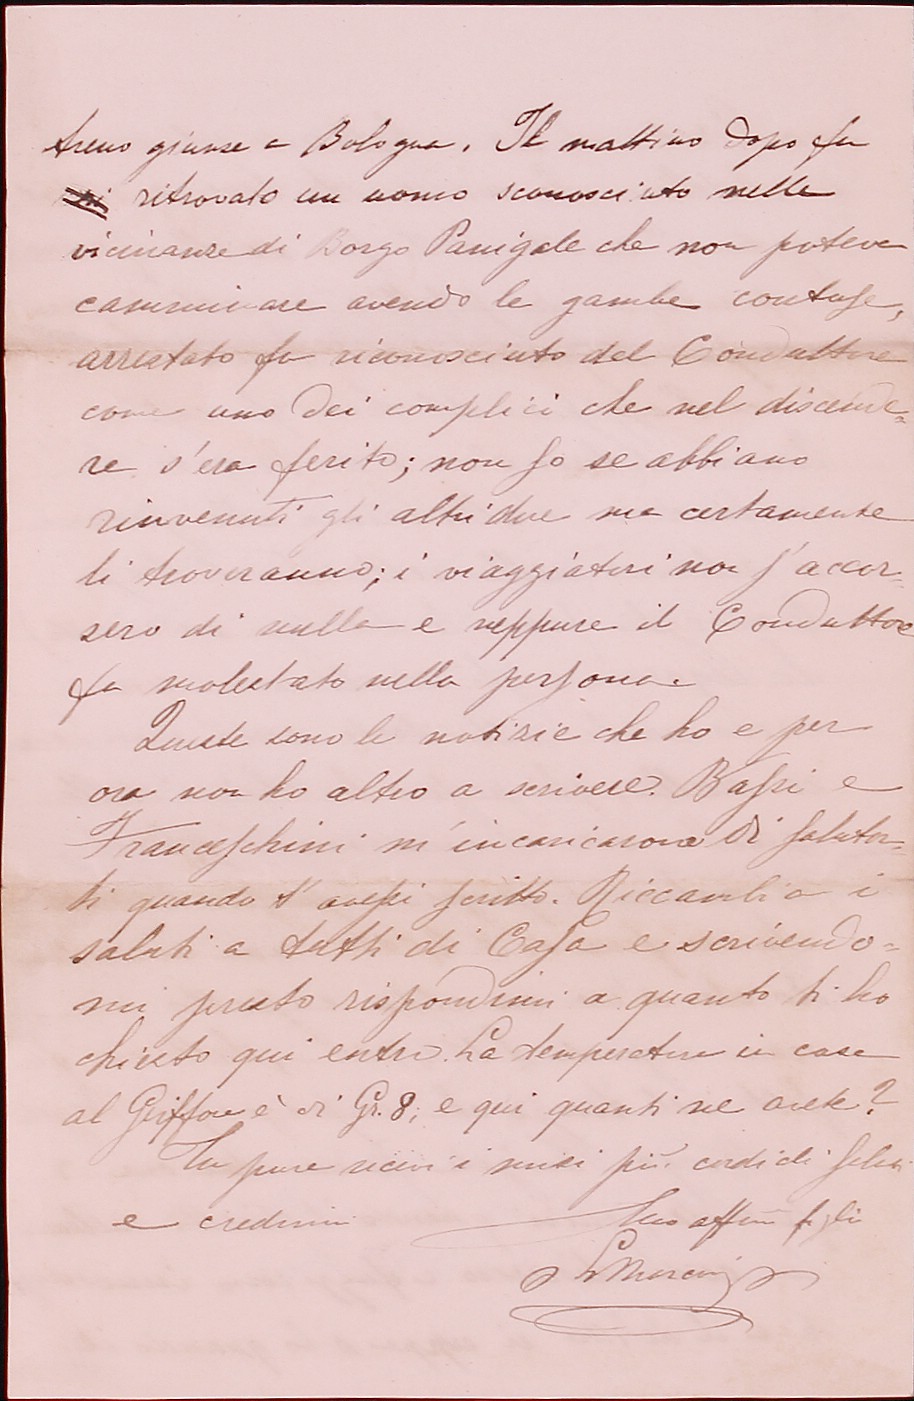 treno giunse a Bologna. Il mattino dopo fu
ritrovato un uomo sconosciuto nelle
vicinanze di Borgo Panigale che non poteva
camminare avendo le gambe contuse,
arrestato fu riconosciuto dal Conduttore
come uno dei complici che nel discende-
re s'era ferito; non so se abbiano
rinvenuti gli altri due ma certamente
li troveranno; i viaggiatori non s'accor-
sero di nulla e neppure il Conduttore
fu molestato nella persona.
Queste sono le notizie che ho e per
ora non ho altro a scrivere. Bassi e
Franceschini m'incaricarono di salutar-
ti quando t'avessi scritto. Riccambia i
saluti a tutti di Casa e scrivendo-
mi presto rispondimi a quanto ti ho
chiesto qui entro. La temperatura in casa
al Griffone è di Gr. 8; e qui quanti ne avete?
Tu pure ricevi i miei più cordiali saluti
e credimi
Tuo affmo figlio